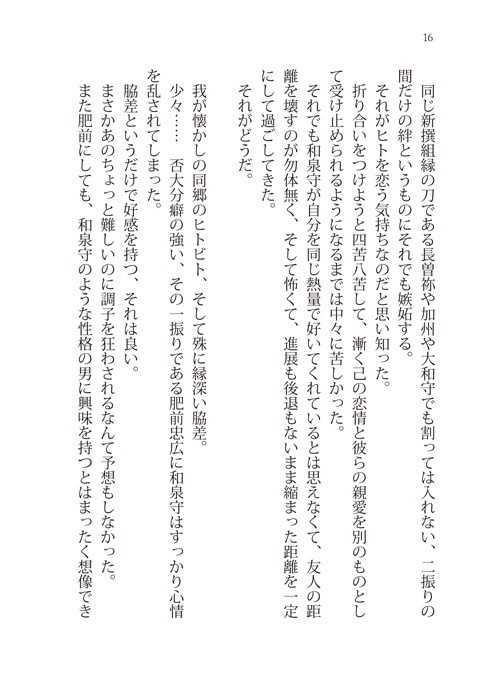 16
同じ新撰組縁の刀である長曽祢や加州や大和守でも割っては入れない、二振りの
間だけの絆というものにそれでも嫉妬する。
それがヒトを恋う気持ちなのだと思い知った。
折り合いをつけようと四苦八苦して、漸く己の恋情と彼らの親愛を別のものとし
て受け止められるようになるまでは中々に苦しかった。
それでも和泉守が自分を同じ熱量で好いてくれているとは思えなくて、友人の距
離を壊すのが勿体無く、そして怖くて、進展も後退もないまま縮まった距離を一定
にして過ごしてきた。
それがどうだ。
我が懐かしの同郷のヒトビト、そして殊に縁深い脇差。
少々……　否大分癖の強い、その一振りである肥前忠広に和泉守はすっかり心情
を乱されてしまった。
脇差というだけで好感を持つ、それは良い。
まさかあのちょっと難しいのに調子を狂わされるなんて予想もしなかった。
また肥前にしても、和泉守のような性格の男に興味を持つとはまったく想像でき